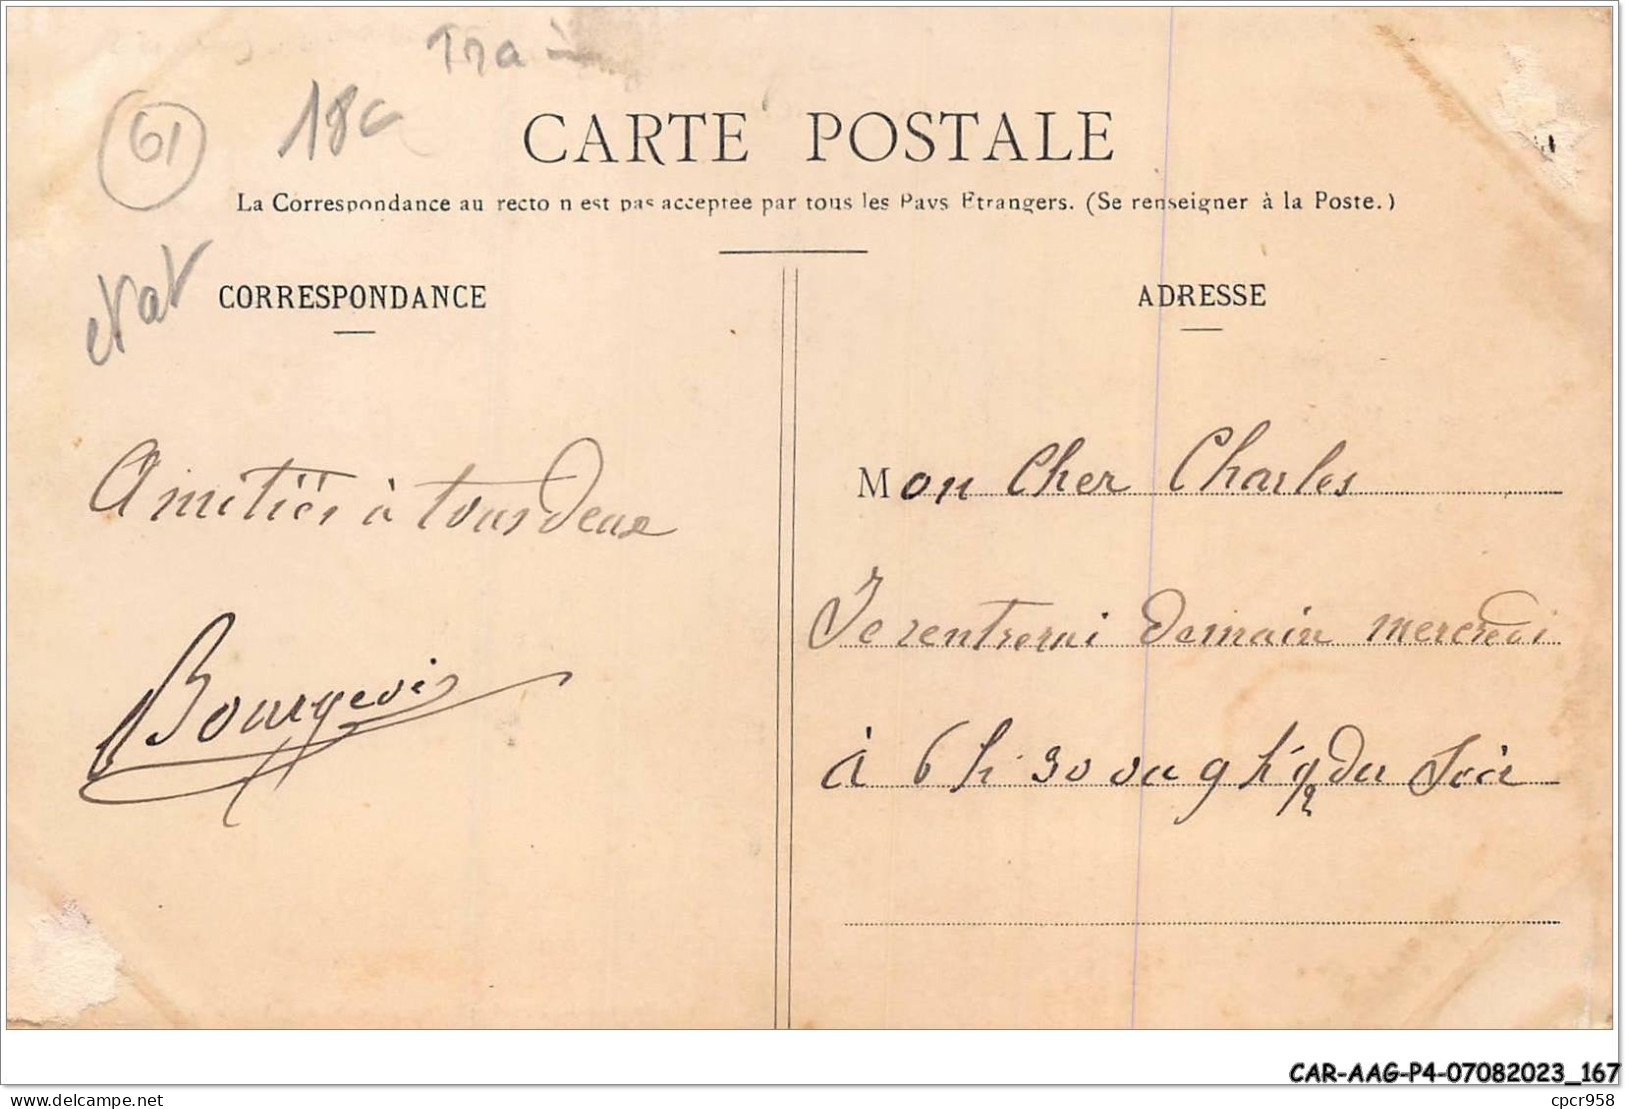 61
CARTE POSTALE
La Correspondance au recto n est pas acceptee par tous les Pays Etrangers. (Se renseigner à la Poste.)
CORRESPONDANCE
Amitiés à tous Deux
Bourgeois
ADRESSE
Mon Cher Charles
Je rentrerai Demain mercredi
à 6 h 30 ou 9 h 1/2 du Soir
CAR-AAG-P4-07082023_167
delcampe.net
cpcr958